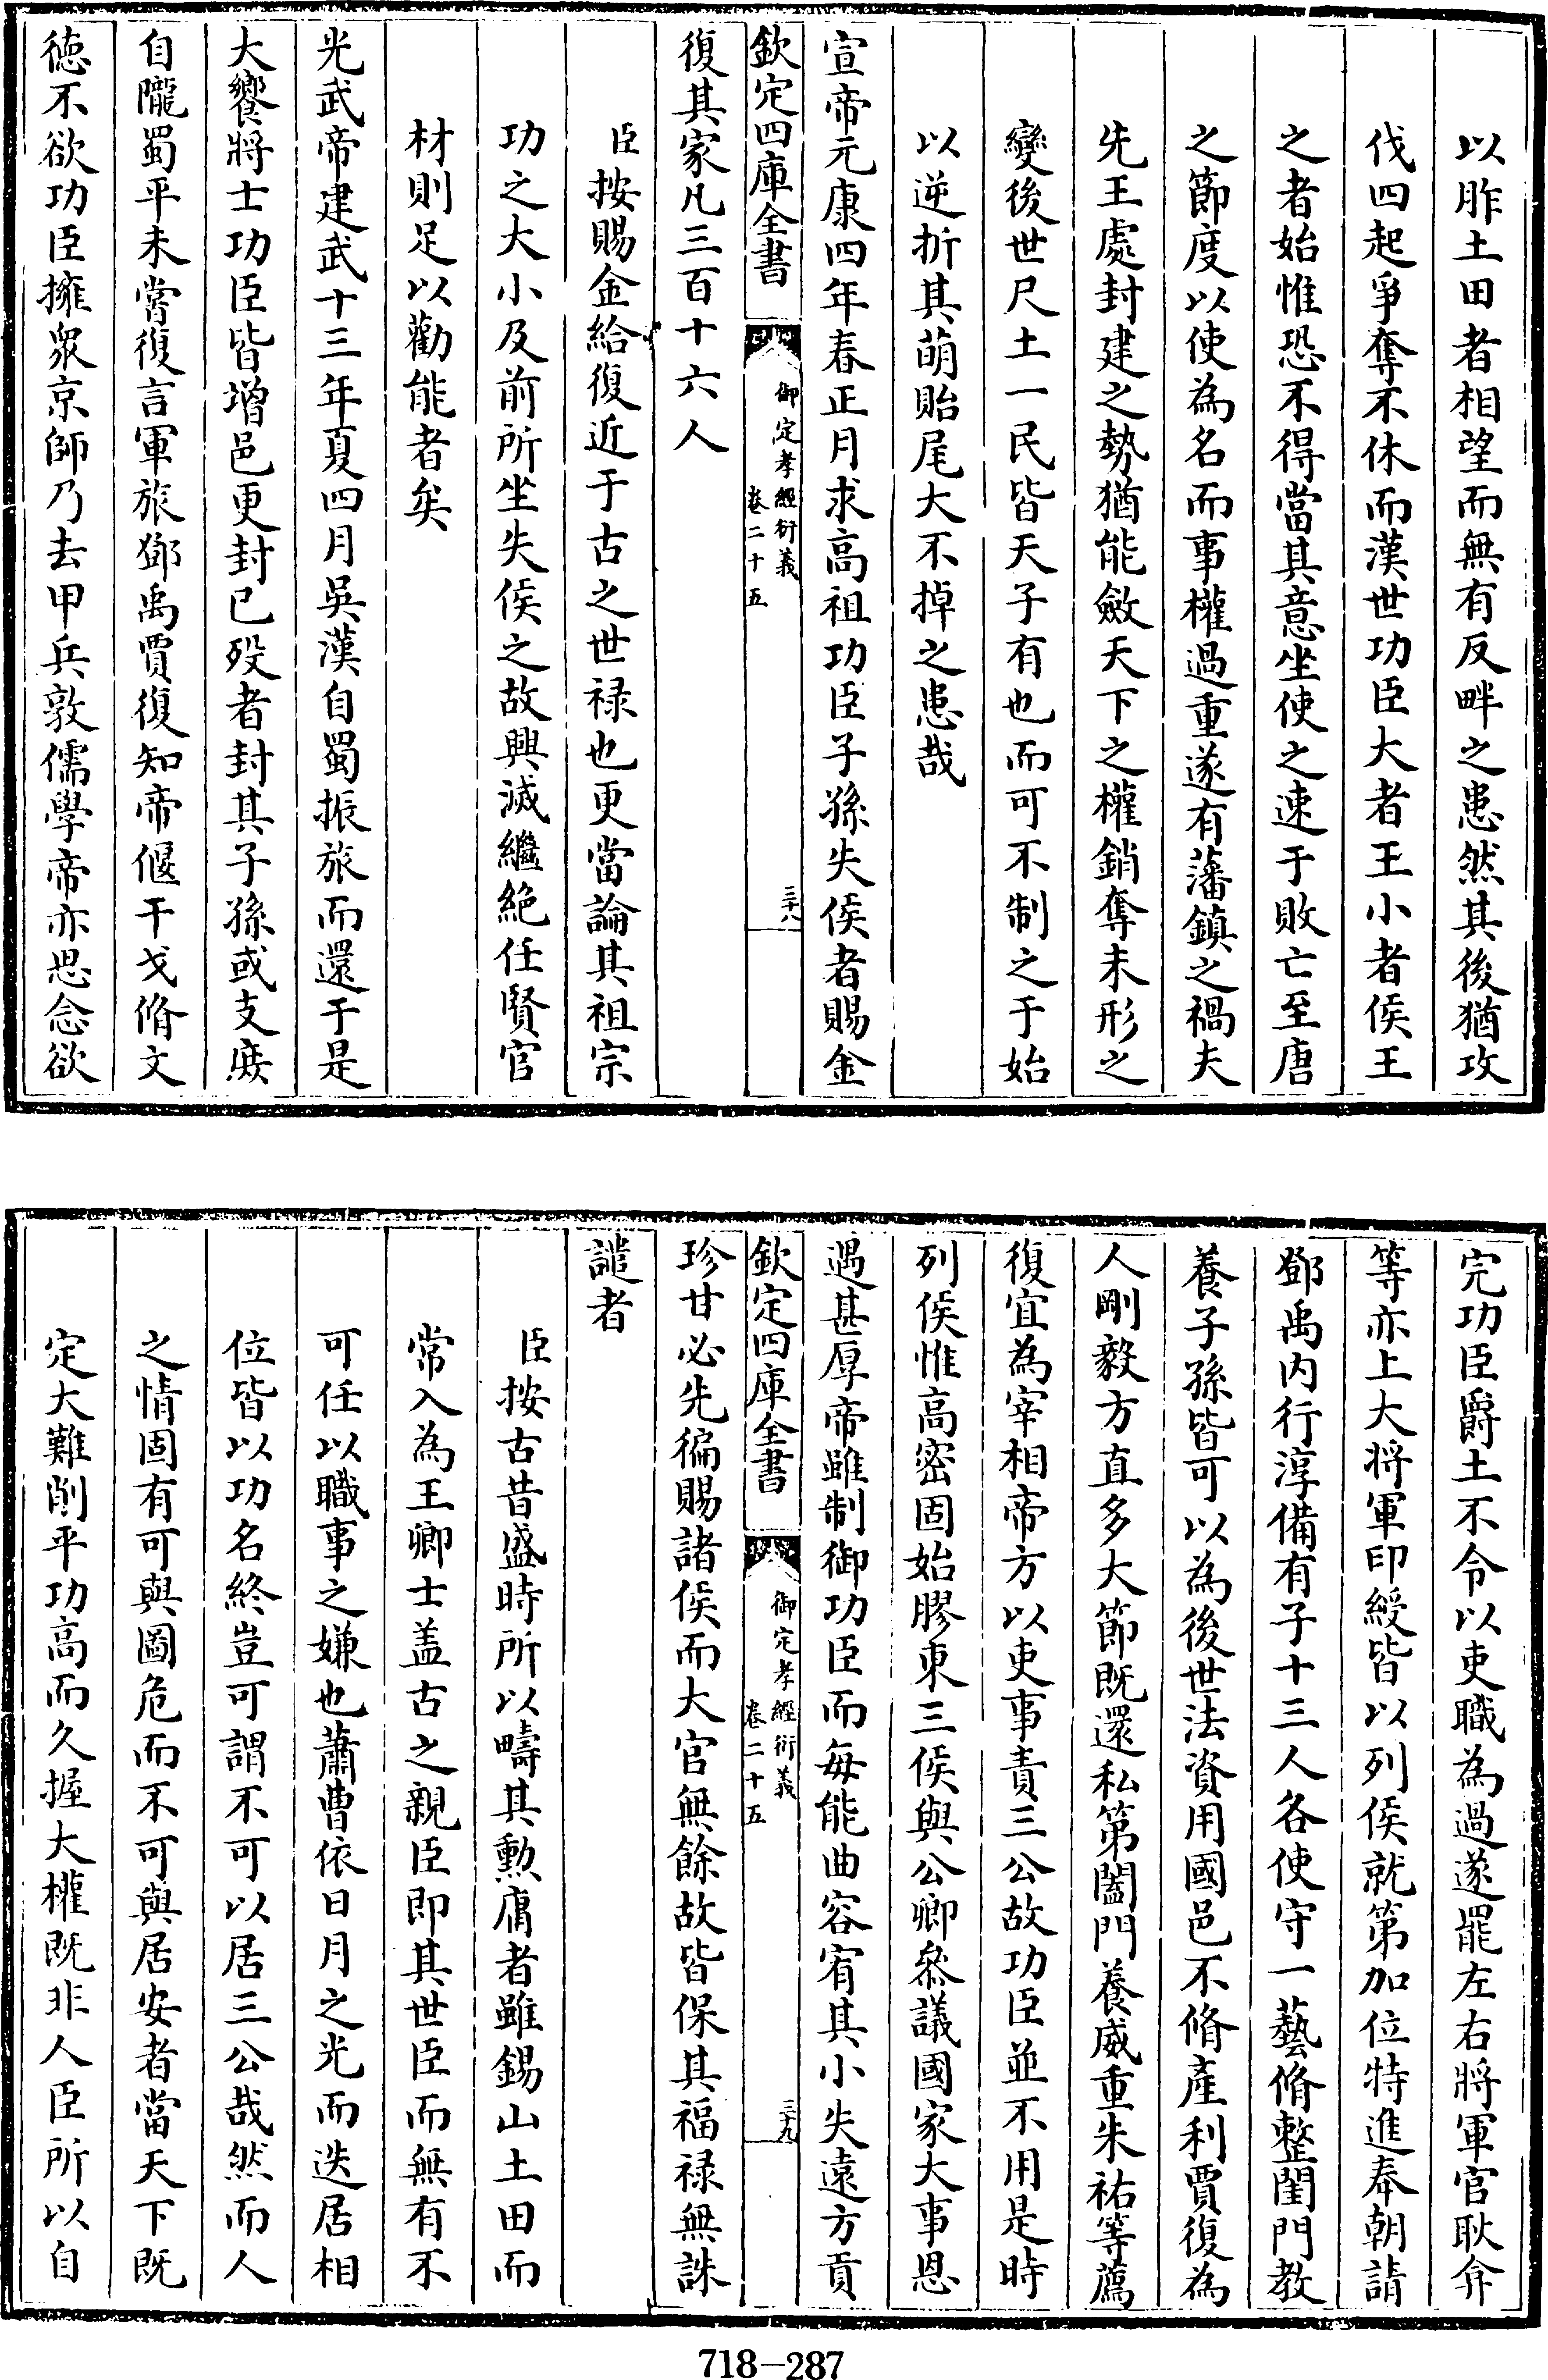 以胙土田者相望而無有反畔之患然其後猶攻
伐四起爭奪不休而漢世功臣大者王小者侯王
之者始惟恐不得當其意坐使之速于敗亡至唐
之節度以使為名而事權過重遂有藩鎮之禍夫
先王處封建之勢猶能斂天下之權銷奪未形之
變後世尺土一民皆天子有也而可不制之于始
以逆折其萌貽尾大不掉之患哉
宣帝元康四年春正月求高祖功臣子孫失侯者賜金
欽定四庫全書
御定孝經衍義
卷二十五
三十八
復其家凡三百十六人
臣按賜金給復近于古之世禄也更當論其祖宗
功之大小及前所坐失侯之故興滅繼絶任賢官
材則足以勸能者矣
光武帝建武十三年夏四月吳漢自蜀振旅而還于是
大饗將士功臣皆增邑更封已歿者封其子孫或支庶
自隴蜀平未嘗復言軍旅鄧禹賈復知帝偃干戈脩文
德不欲功臣擁衆京師乃去甲兵敦儒學帝亦思念欲
完功臣爵土不令以吏職為過遂罷左右將軍官耿弇
等亦上大將軍印綬皆以列侯就第加位特進奉朝請
鄧禹内行淳備有子十三人各使守一藝脩整閨門教
養子孫皆可以為後世法資用國邑不脩產利賈復為
人剛毅方直多大節既還私第闔門養威重朱祐等薦
復宜為宰相帝方以吏事責三公故功臣並不用是時
列侯惟高密固始膠東三侯與公卿叅議國家大事恩
遇甚厚帝雖制御功臣而每能曲容宥其小失遠方貢
欽定四庫全書
御定孝經衍義
卷二十五
三十九
珍甘必先徧賜諸侯而大官無餘故皆保其福禄無誅
譴者
臣按古昔盛時所以疇其勲庸者雖錫山土田而
常入為王卿士盖古之親臣即其世臣而無有不
可任以職事之嫌也蕭曹依日月之光而迭居相
位皆以功名終豈可謂不可以居三公哉然而人
之情固有可與圖危而不可與居安者當天下既
定大難削平功高而久握大權既非人臣所以自
718-287